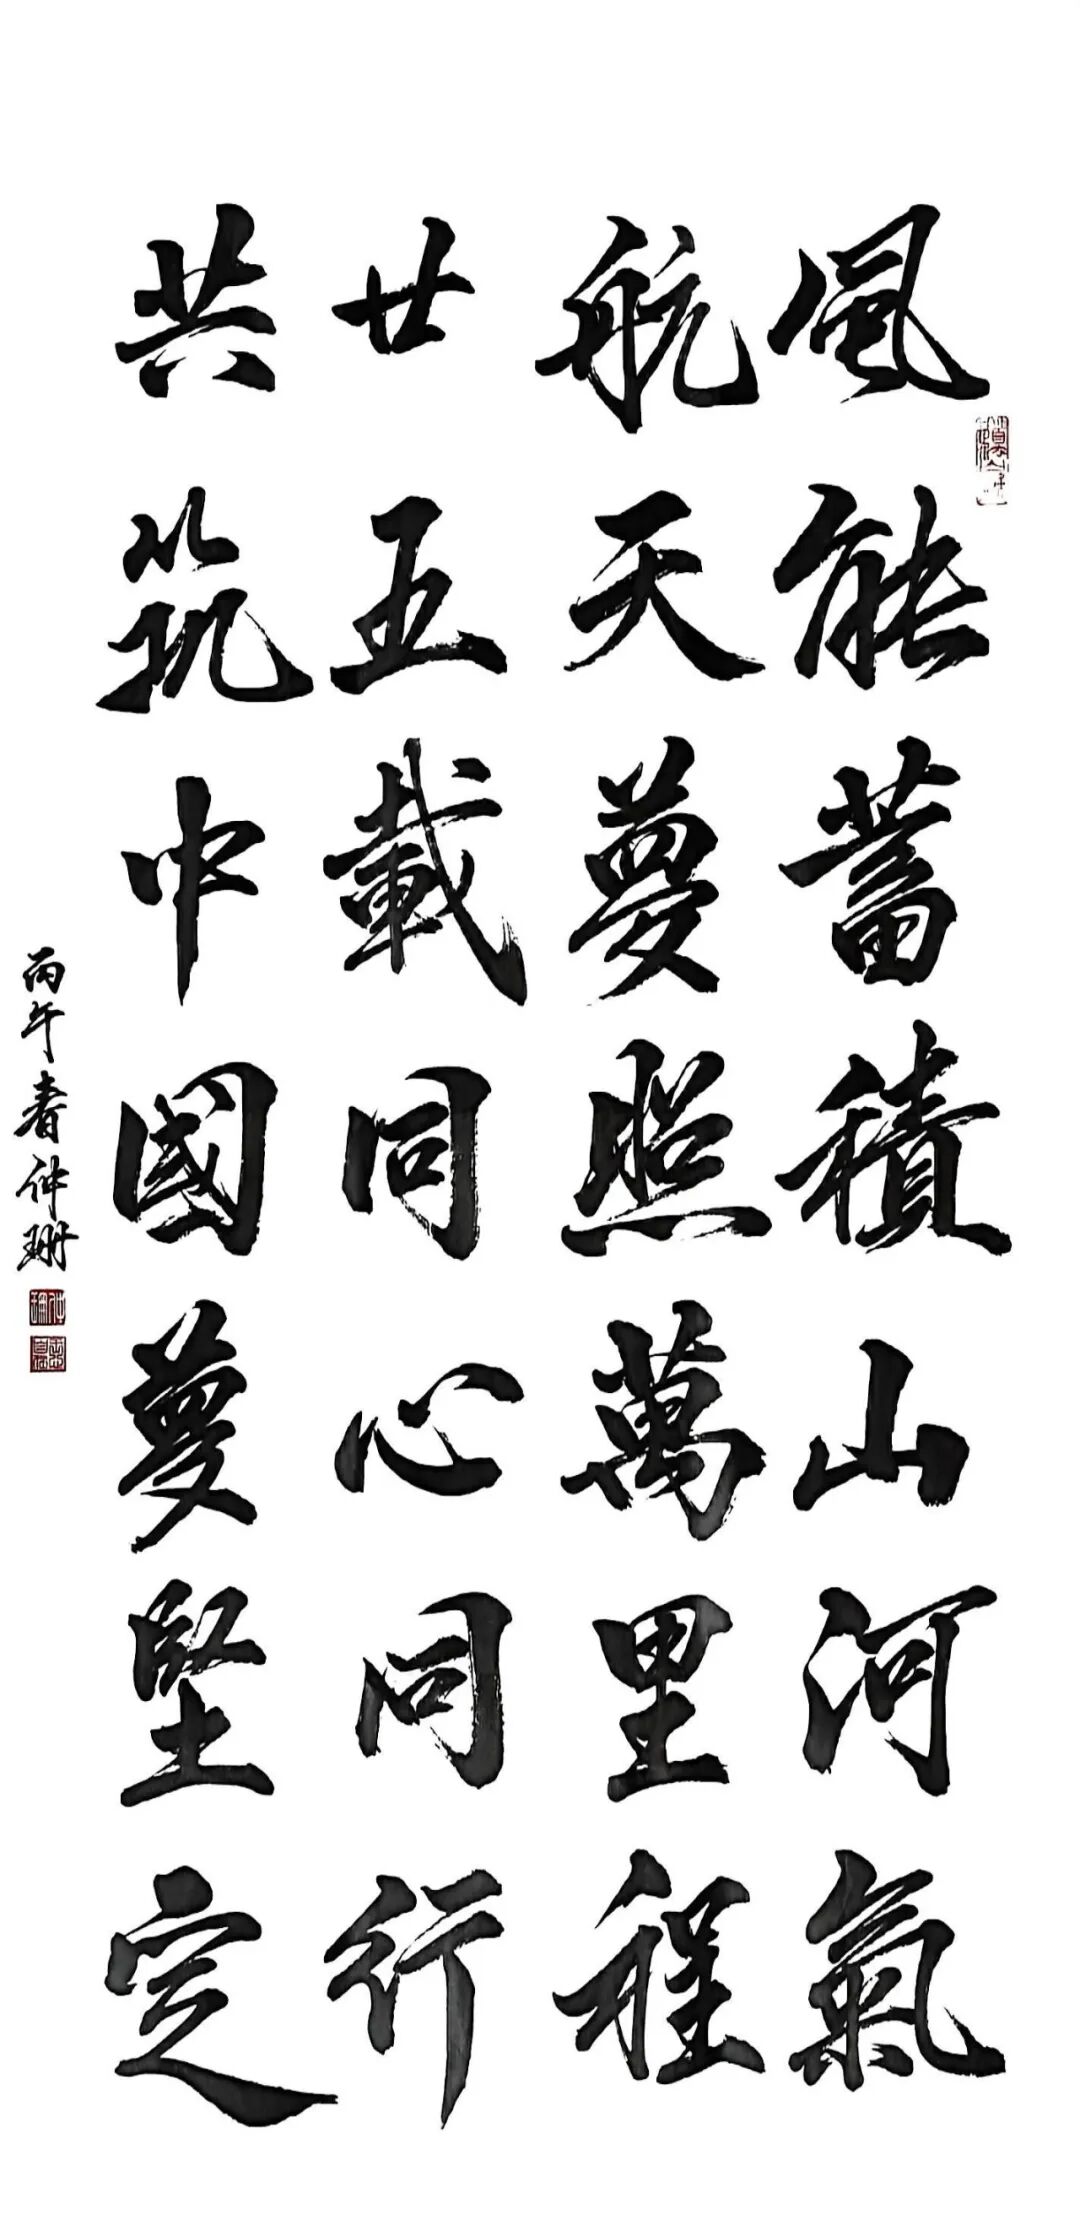 風能蓄積山河氣
航天夢照萬里程
廿五載同心同行
共筑中國夢堅定
丙午春仲珊